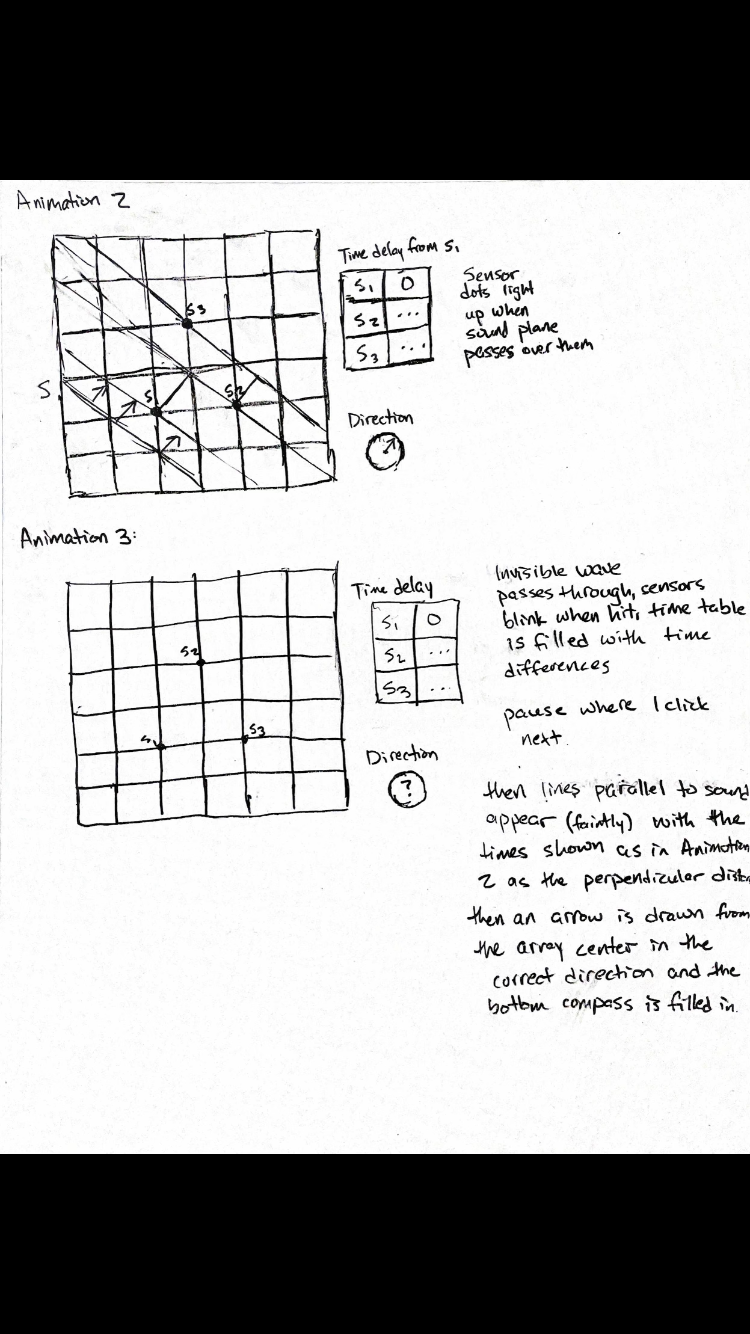 Animation 2
Time delay from S1
S3
S1 0
S2 ...
S3 ...
Sensor
dots light
up when
sound plane
passes over them
S
S
S2
Direction
Animation 3:
Time delay
S1 0
S2 ...
S3 ...
Invisible wave
passes through, sensors
blink when hit, time table
is filled with time
differences
S2
S1
S3
pause where I click
next.
Direction
?
then lines parallel to sound
appear (faintly) with the
times shown as in Animation
2 as the perpendicular distan
then an arrow is drawn from
the array center in the
correct direction and the
bottom compass is filled in.